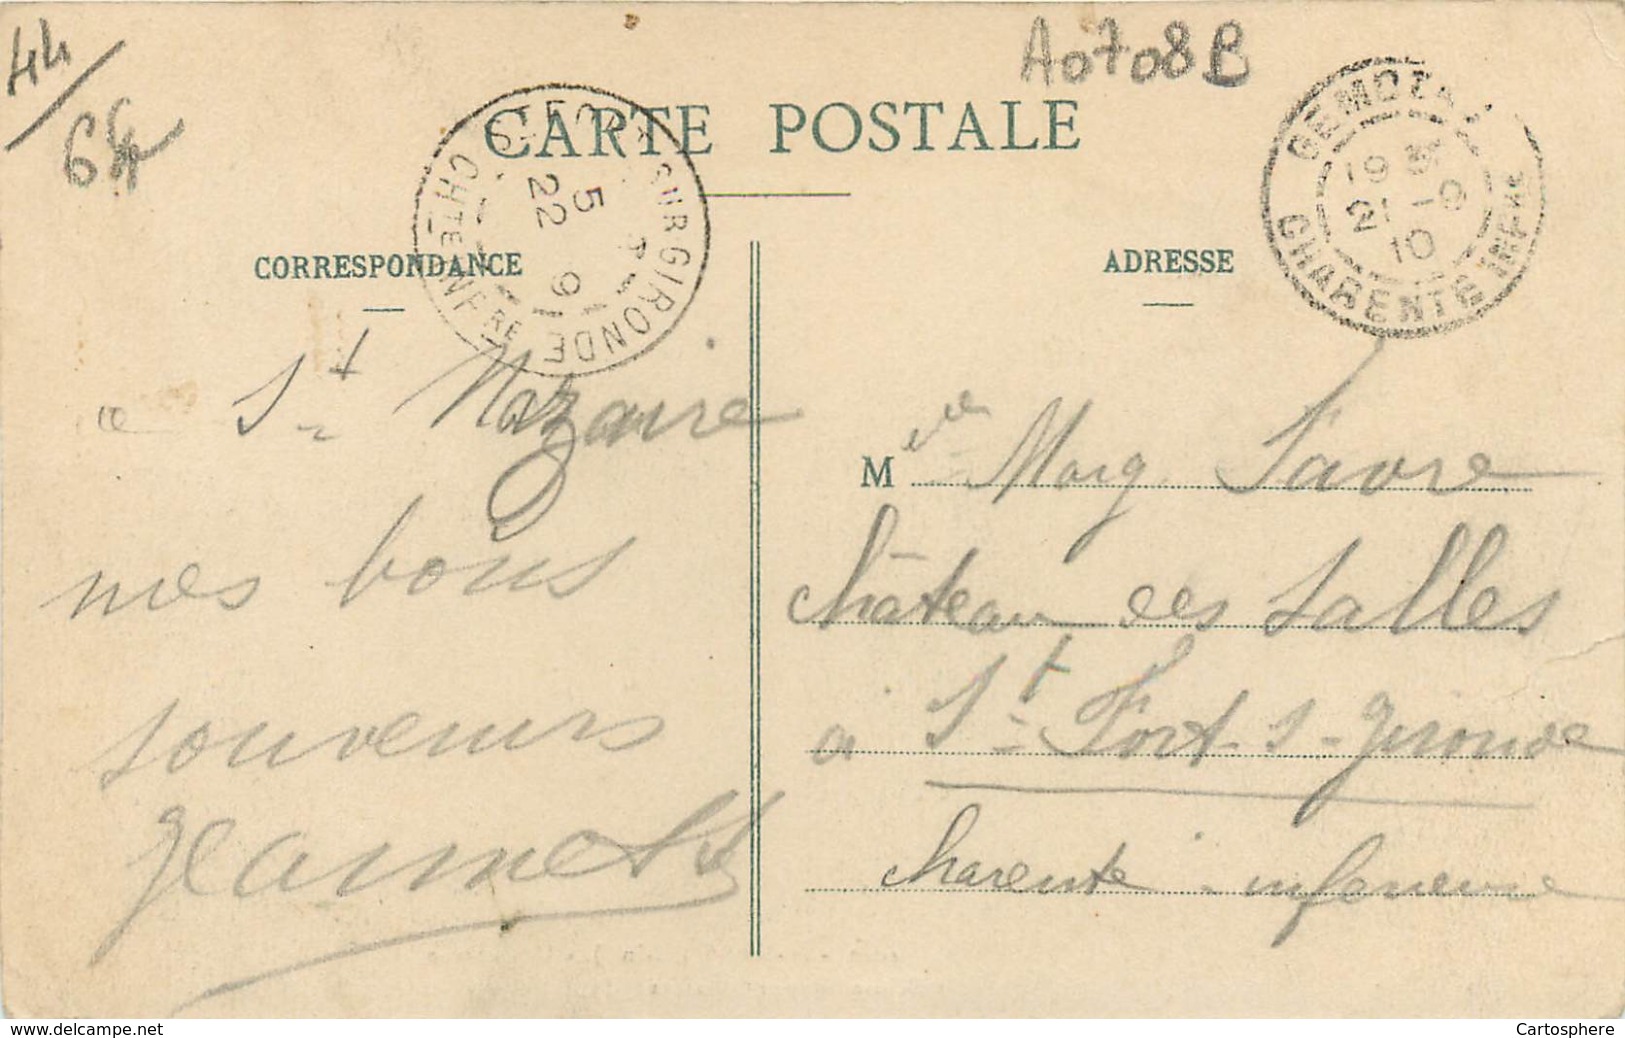 44
A0708B
CARTE POSTALE
CORRESPONDANCE
ADRESSE
GEMOZAC
19
21 - 9
10
CHARENTE INFRE
SUR GIRONDE
5
22 9
CHTE INFRE
a St Nazaire
mes bons
souvenirs
Jeannette
Melle Marg Favre
Château des Salles
a St Fort s - Gironde
Charente - inferieure
www.delcampe.net
Cartosphere